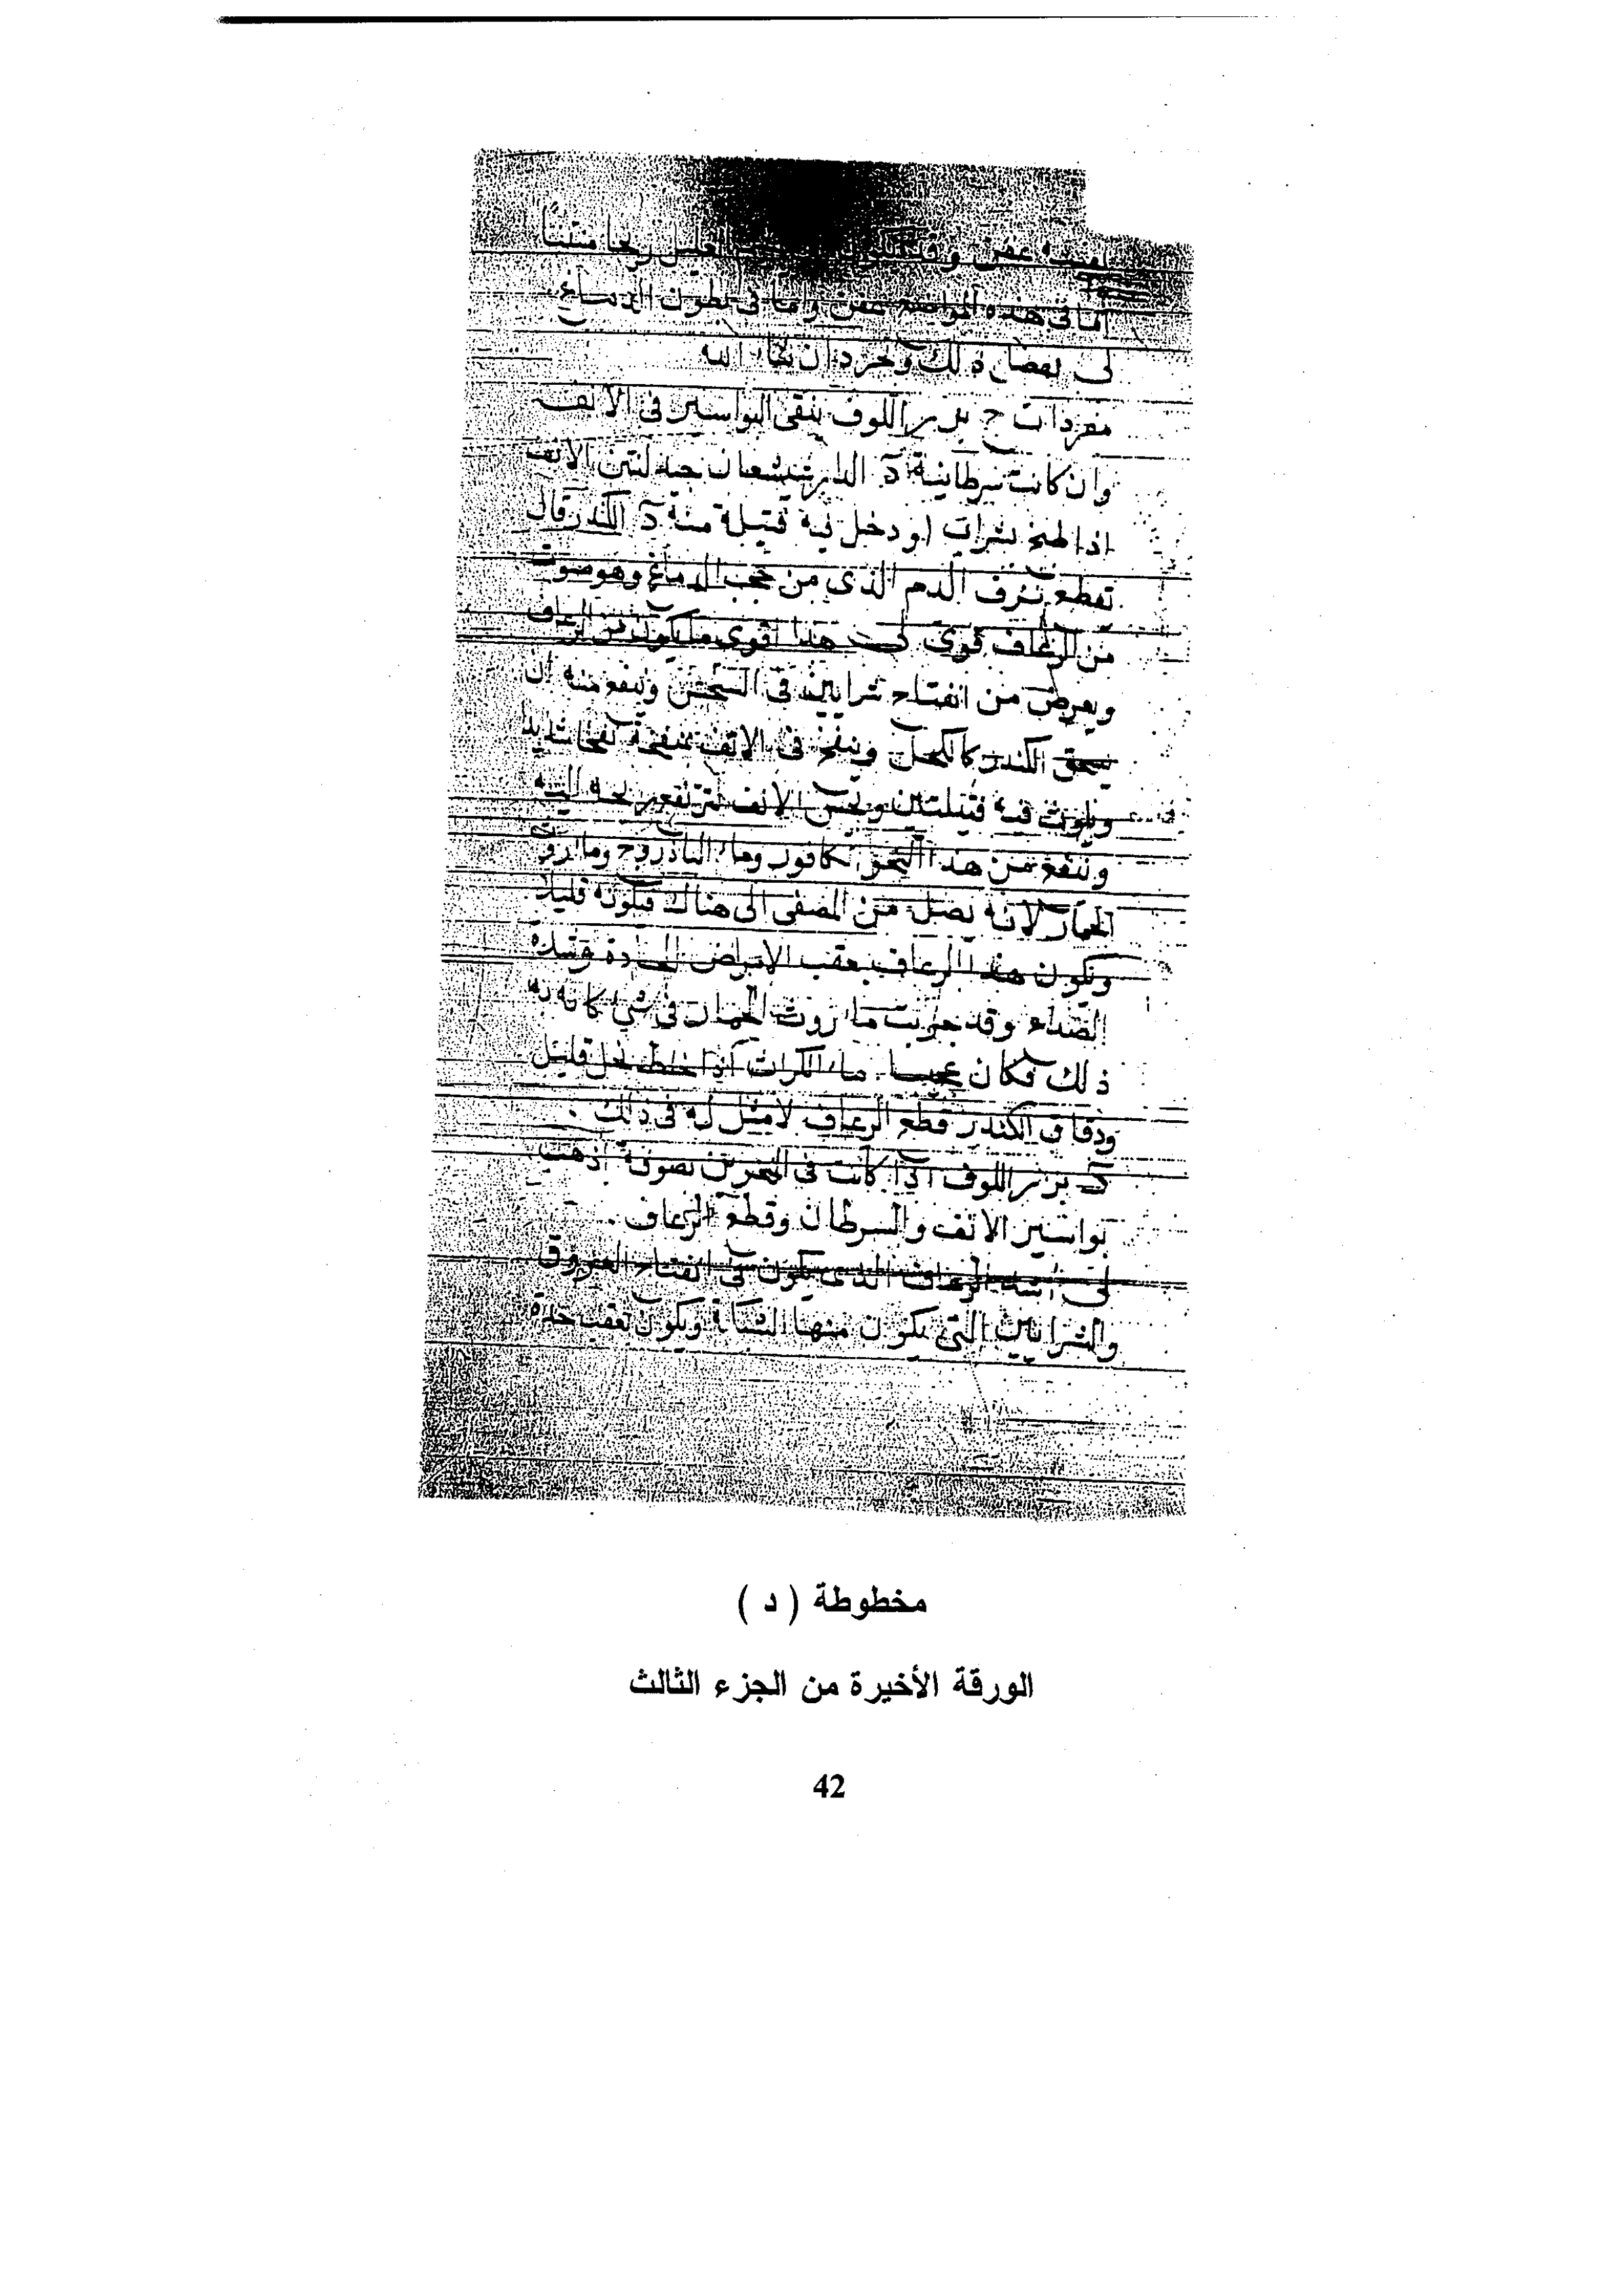 عفن وقد تكون ريحا منتنا
اما في هذه المواضع عفن واما في بطون الدماغ
لى يفصل ذلك ويحرر ان شاء الله
مفردات ج بزر اللوف ينقى البواسير في الانف
وان كانت سرطانية د جيد لنتن الانف
اذا لطخ او دخل فيه فتيلة منه د الكندر قال
تقطع نزف الدم الذى من حجب الدماغ وهو صوت
من الرعاف قوى لى هذا اقوى ما يكون من الرعاف
ويعرض من انفتاح شرايين في وينفع منه ان
يسحق الكندر كالكحل وينفخ في الانف بمنفخة نفخا شديدا
ويلوث فيه فتيلتين ويحبس الانف
وينفع من هذا كافور وماء الباذروج وماء روث
الحمار لانه يصل من المصفى الى هناك قليلا
ويكون هذا الرعاف بعقب الامراض الحادة وشدة
الصداع وقد جربت ماء روث الحمار في شى كانه به
ذلك فكان عجيبا ماء الكراث اذا خلط بخل قليل
ودقاق الكندر قطع الرعاف لا مثل له في ذلك .
د بزر اللوف اذا كانت في المنخرين بصوفة اذهب
بواسير الانف والسرطان وقطع الرعاف .
لى اشد الرعاف الذى يكون في انفتاح العروق
والشرايين التى يكون منها الشبكة ويكون بعقب حدة
مخطوطة ( د )
الورقة الأخيرة من الجزء الثالث
42